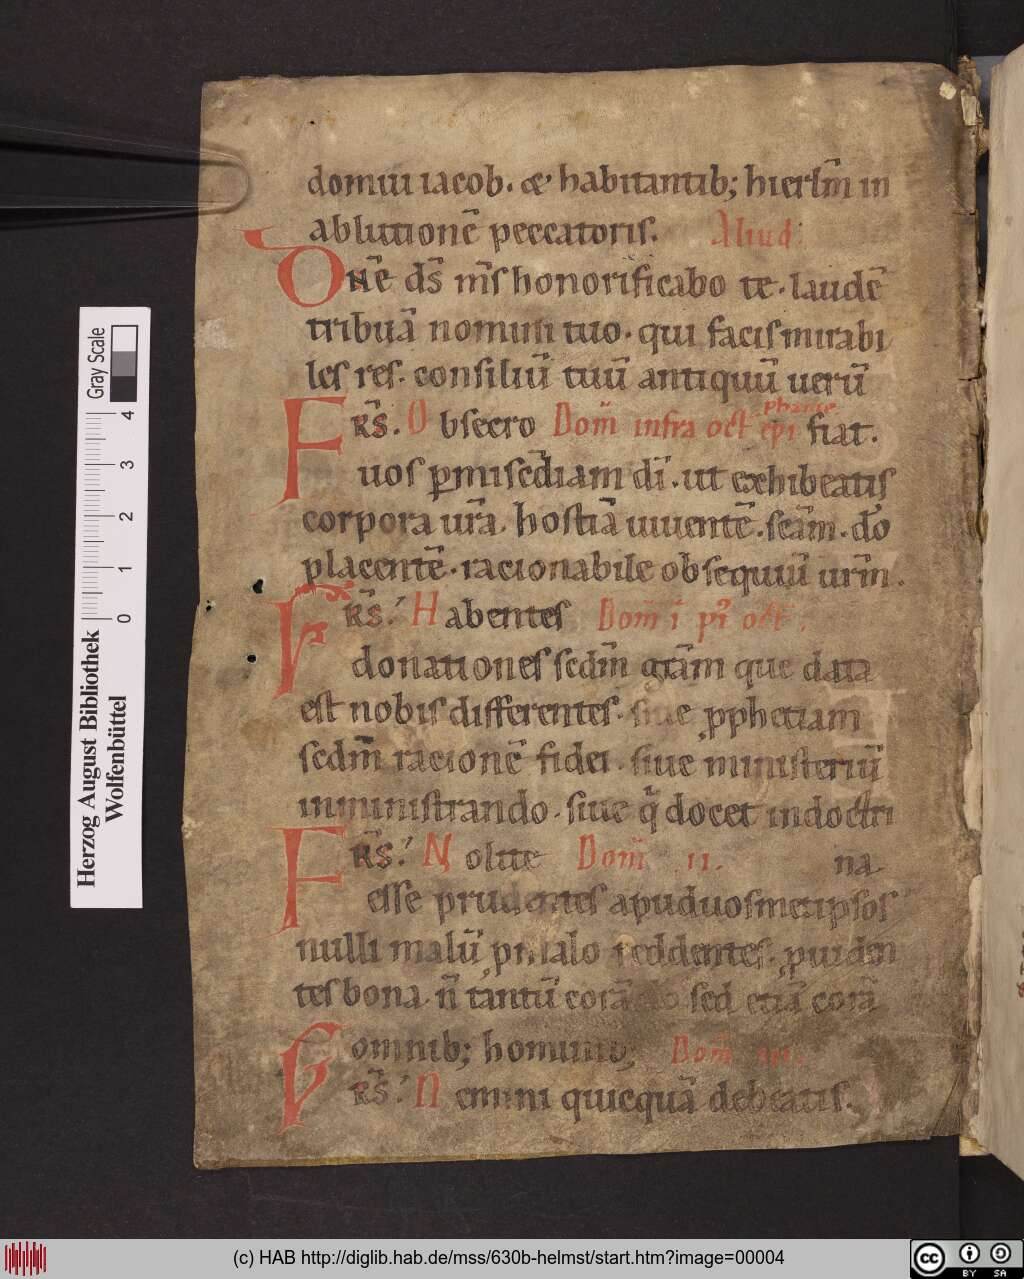 domui iacob. & habitantib; hierl̄m in
ablutionē peccatoris. Aliud:
Dn̄e ds̄ m̄s honorificabo te. laudē
tribuā nomini tuo. qui facis mirabi
les res. consiliū tuū antiquū uerū
FRS̄. Obsecro Dom̄ infra oct epi phanie fiat.
uos p̄misc̄diam di. ut exhibeatis
corpora ur̄a. hostiā uiuentē. sc̄am. do
placentē. racionabile obsequiū ur̄m.
FRS̄. Habentes Dom̄ i p̄ oct.
donationes sc̄dm gr̄am que data
est nobis differentes. siue pphetiam
sc̄dm racionē fidei. siue ministeriū
inministrando. siue q̄ docet indoctri
FRS̄. Nolite Dom̄ ii. na.
esse prudentes apuduosmetipsos
nulli malū p malo reddentes. puiden
tes bona. n̄ tantū corā do sed etiā corā
omnib; hominib; Dom̄ iii.
FRS̄. Nemini quicquā debeatis.
Herzog August Bibliothek
Wolfenbüttel
Gray Scale
0 1 2 3 4
(c) HAB http://diglib.hab.de/mss/630b-helmst/start.htm?image=00004
cc BY SA